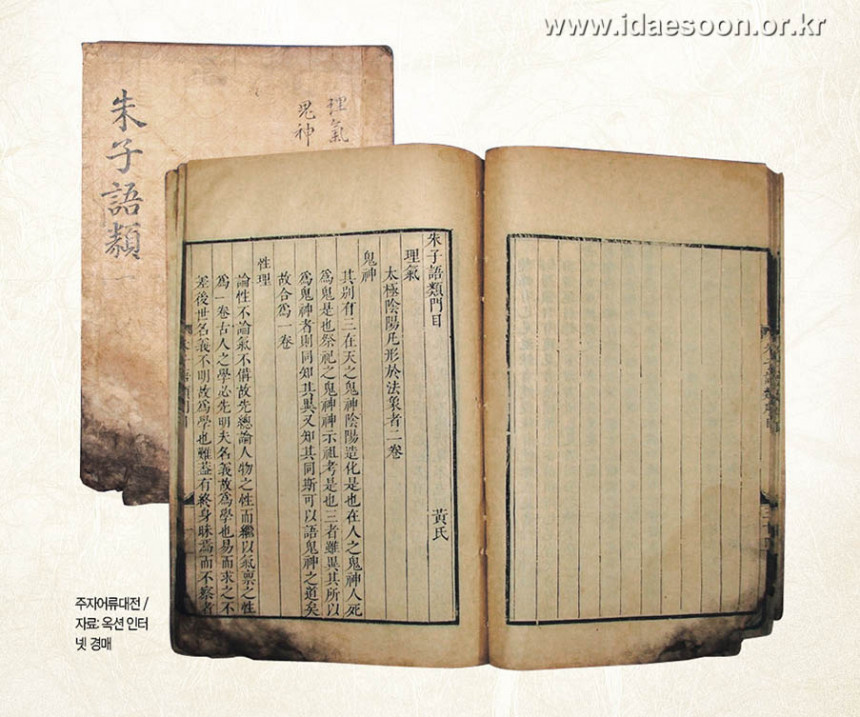 www.idaesoon.or.kr
理氣
鬼神
朱子語類 一
朱子語類門目 黃氏
理氣
太極陰陽凡形於法象者二卷
鬼神
其別有三在天之鬼神陰陽造化是也在人之鬼神人死
爲鬼是也祭祀之鬼神神示祖考是也三者雖異其所以
爲鬼神者則同知其異又知其同斯可以語鬼神之道矣
故合爲一卷
性理
論性不論氣不備故先總論人物之性而繼以氣禀之性
爲一卷古人之學必先明夫名義故爲學也易而求之不
差後世名義不明故爲學也難蓋有終身昧焉而不察者
주자어류대전 /
자료: 옥션 인터
넷 경매